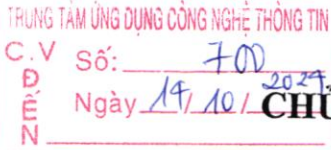 TRUNG TÂM ỨNG DỤNG CÔNG NGHỆ THÔNG TIN
C.V ĐẾN
Số: 700
Ngày 14/10/2024
CHỦ